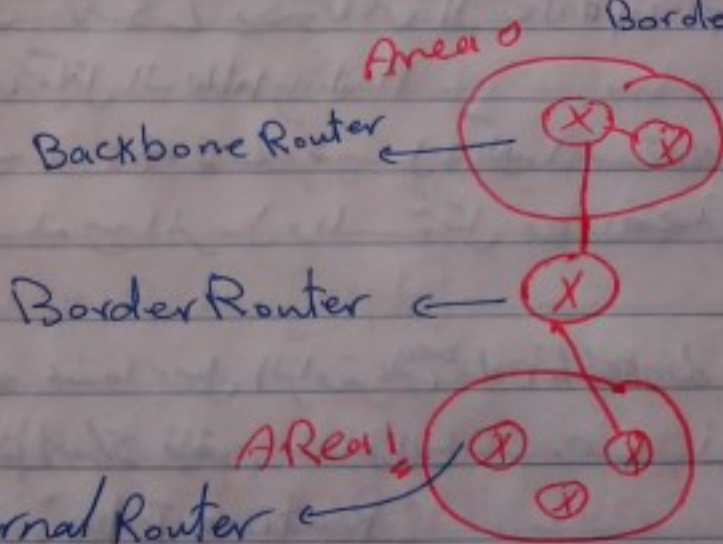 Borde
Area 0
Backbone Router
X X
Border Router
X
AReal
X X
X
rnal Router